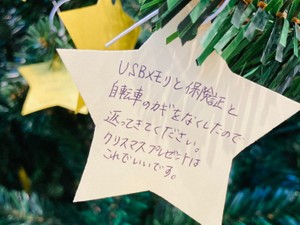 USBメモリと保険証と
自転車のカギをなくしたので
返ってきてください。
クリスマスプレゼントは
これでいいです。